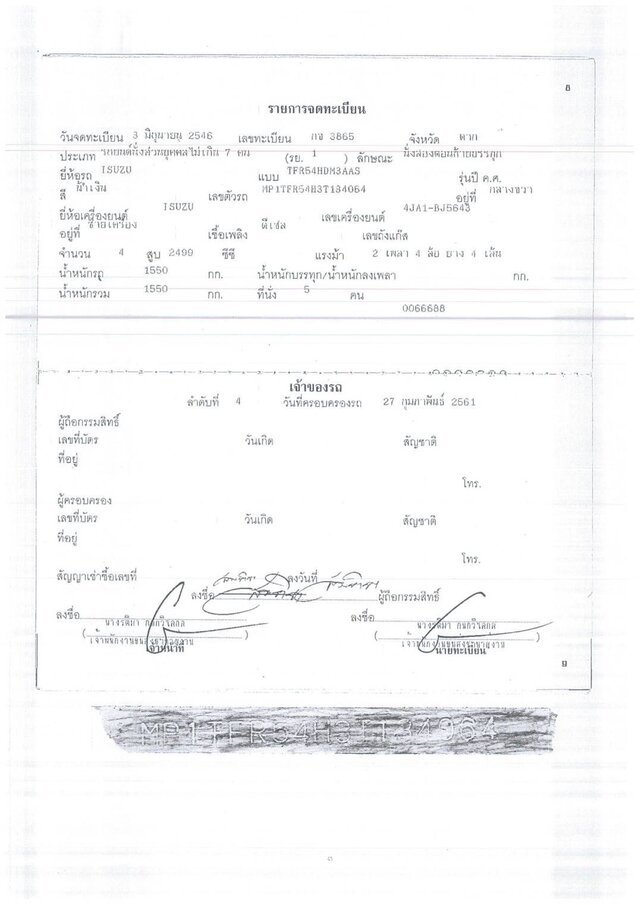 8
รายการจดทะเบียน
วันจดทะเบียน 3 มิถุนายน 2546 เลขทะเบียน กข 3865 จังหวัด ตาก
ประเภท รถยนต์นั่งส่วนบุคคลไม่เกิน 7 คน (รย. 1 ) ลักษณะ นั่งสองตอนท้ายบรรทุก
ยี่ห้อรถ ISUZU แบบ TFR54HDM3AAS รุ่นปี ค.ศ.
สี น้ำเงิน เลขตัวรถ MP1TFR54H3T134064 อยู่ที่ กลางขวา
ยี่ห้อเครื่องยนต์ ISUZU เลขเครื่องยนต์ 4JA1-BJ5643
อยู่ที่ ซ้ายเครื่อง เชื้อเพลิง ดีเซล เลขถังแก๊ส
จำนวน 4 สูบ 2499 ซีซี แรงม้า 2 เพลา 4 ล้อ ยาง 4 เส้น
น้ำหนักรถ 1550 กก. น้ำหนักบรรทุก/น้ำหนักลงเพลา กก.
น้ำหนักรวม 1550 กก. ที่นั่ง 5 คน
0066688
เจ้าของรถ
ลำดับที่ 4 วันที่ครอบครองรถ 27 กุมภาพันธ์ 2561
ผู้ถือกรรมสิทธิ์
เลขที่บัตร วันเกิด สัญชาติ
ที่อยู่
โทร.
ผู้ครอบครอง
เลขที่บัตร วันเกิด สัญชาติ
ที่อยู่
โทร.
สัญญาเช่าซื้อเลขที่ ลงวันที่
ลงชื่อ ผู้ถือกรรมสิทธิ์
ลงชื่อ ลงชื่อ
นางรติมา นางรติมา
( ) ( )
เจ้าหน้าที่ นายทะเบียน
9
MP1TFR54H3T134064